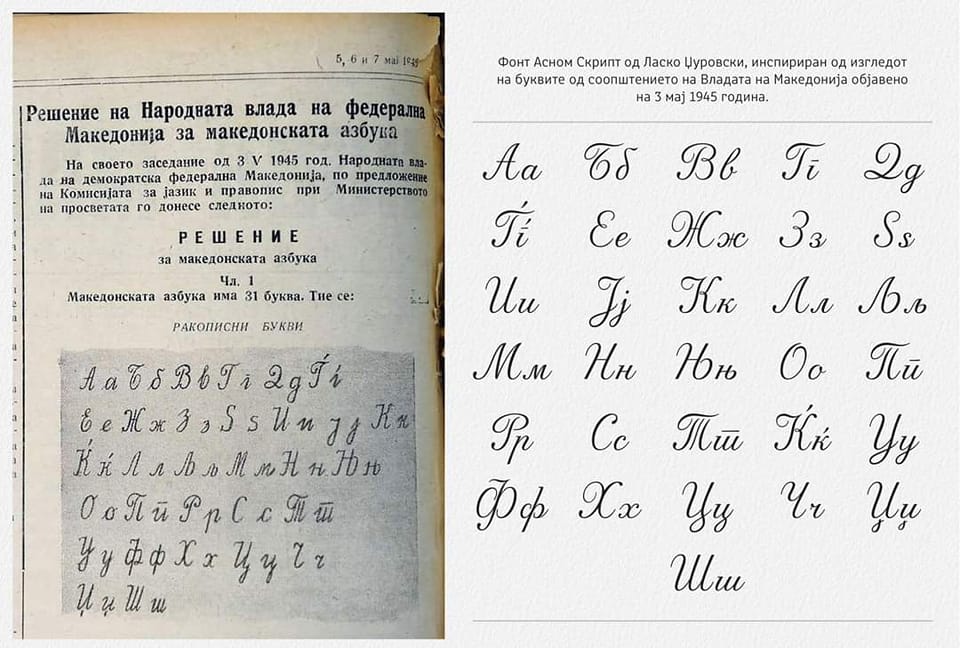 5, 6 и 7 мај 1945
Решение на Народната влада на федерална
Македонија за македонската азбука
На своето заседание од 3 V 1945 год. Народната вла-
да на демократска федерална Македонија, по предложение
на Комисијата за јазик и правопис при Министерството
на просветата го донесе следното:
РЕШЕНИЕ
за македонската азбука
Чл. 1
Македонската азбука има 31 буква. Тие се:
РАКОПИСНИ БУКВИ
А а Б б В в Г г Д д Ѓ ѓ
Е е Ж ж З з Ѕ ѕ И и Ј ј К к
Ќ ќ Л л Љ љ М м Н н Њ њ
О о П п Р р С с Т т
У у Ф ф Х х Ц ц Ч ч
Џ џ Ш ш
Фонт Асном Скрипт од Ласко Џуровски, инспириран од изгледот
на буквите од соопштението на Владата на Македонија објавено
на 3 мај 1945 година.
Аа Бб Вв Гг Дд
Ѓѓ Ее Жж Зз Ѕѕ
Ии Јј Кк Лл Љљ
Мм Нн Њњ Оо Пп
Рр Сс Тт Ќќ Уу
Фф Хх Цц Чч Џџ
Шш